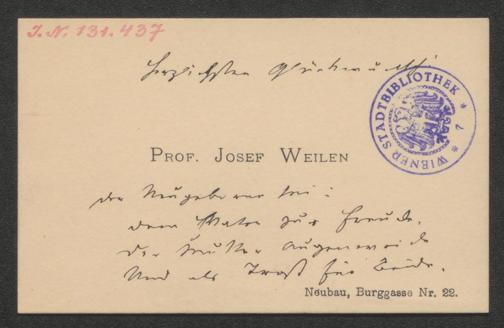 J. N. 131.437
herzlichsten Glückwunsch!
WIENER STADTBIBLIOTHEK * 7 *
PROF. JOSEF WEILEN
der Neugeborne sei:
dem Vater zur Freude,
der Mutter Augenweide
Und als Trost für beide.
Neubau, Burggasse Nr. 22.